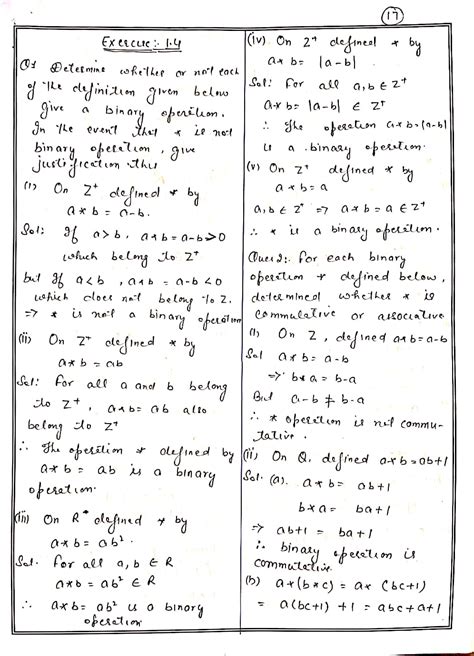 17
Exercise:- 1.4
Q1 Determine whether or not each
of the definition given below
give a binary operation.
In the event that * is not
binary operation, give
justification this
(i) On Z⁺ defined * by
a * b = a-b.
Sol: If a>b, a*b = a-b>0
which belong to Z⁺
but If a<b, a*b = a-b<0
which does not belong to Z.
=> * is not a binary operation
(ii) On Z⁺ defined * by
a*b = ab
Sol: For all a and b belong
to Z⁺, a*b = ab also
belong to Z⁺
∴ The operation * defined by
a*b = ab is a binary
operation.
(iii) On R* defined * by
a*b = ab².
Sol. for all a, b ∈ R
a*b = ab² ∈ R
∴ a*b = ab² is a binary
operation
(iv) On Z⁺ defined * by
a*b = |a-b|
Sol: For all a, b ∈ Z⁺
a*b = |a-b| ∈ Z⁺
∴ The operation a*b = |a-b|
is a binary operation.
(v) On Z⁺ defined * by
a*b = a
a, b ∈ Z⁺ => a*b = a ∈ Z⁺
∴ * is a binary operation.
Ques 2:. For each binary
operation * defined below,
determined whether * is
commutative or associative
(i) On Z, defined a*b = a-b
Sol a*b = a-b
=> b*a = b-a
But a-b ≠ b-a
∴ * operation is not commu-
tative.
(ii) On Q, defined a*b = ab+1
Sol. (a). a*b = ab+1
b*a = ba+1
=> ab+1 = ba+1
∴ binary operation is
commutative.
(b) a*(b*c) = a* (bc+1)
= a(bc+1) +1 = abc+a+1